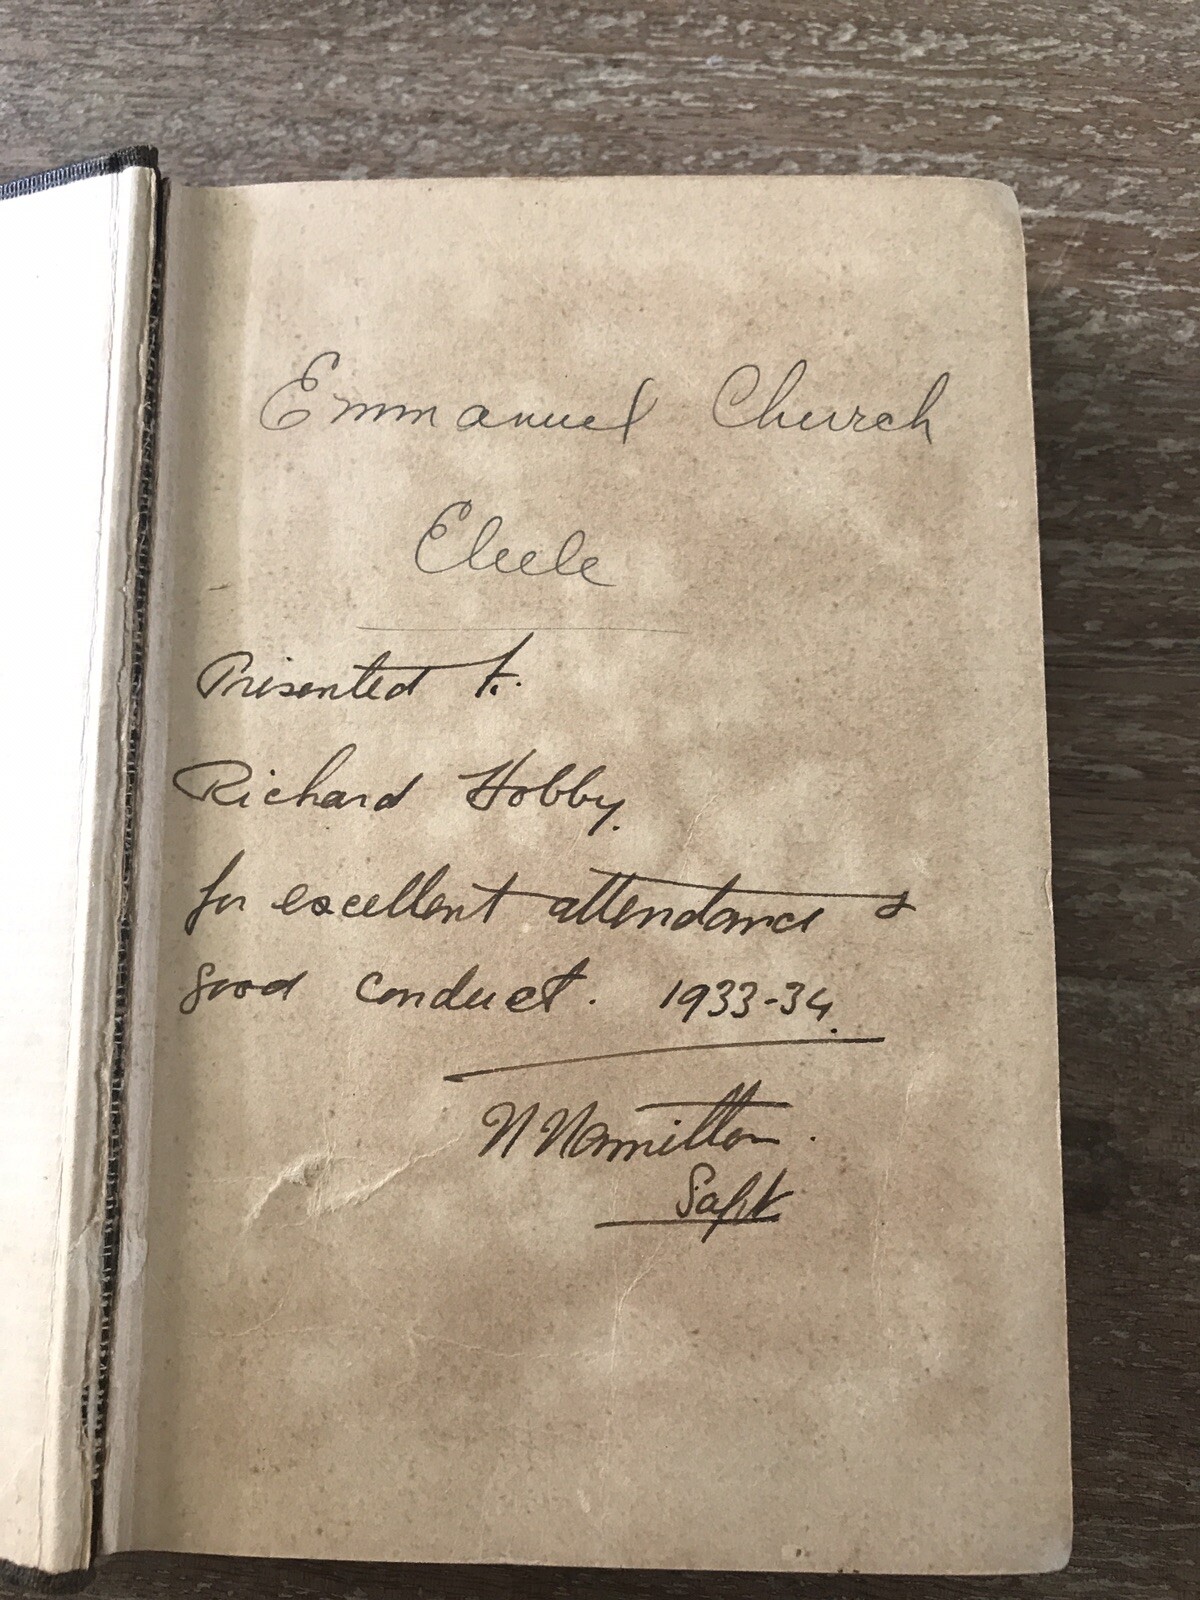 Emmanuel Church
Eleele
Presented to
Richard Hobby.
for excellent attendance &
good conduct. 1933-34.
Hamilton.
Supt